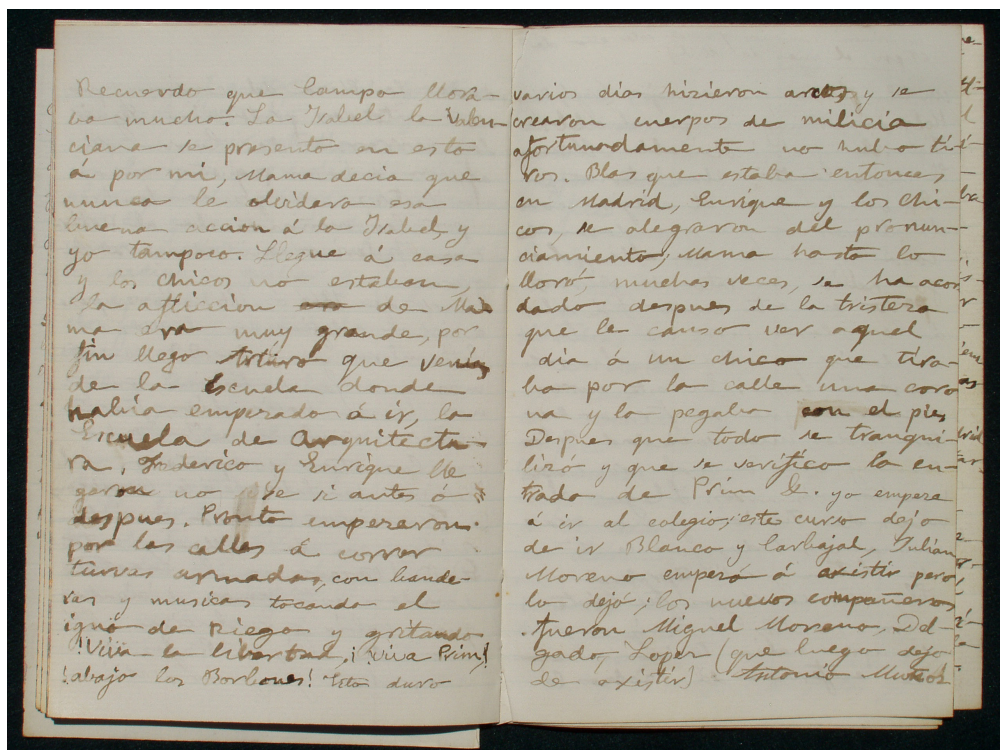 Recuerdo que Campo llora-
ba mucho. La Isabel la Valen-
ciana se presento en esto
á por mi, Mama decia que
nunca le olvidera esa
buena accion á la Isabel, y
yo tampoco. Llegue á casa
y los chicos no estaban,
la afliccion de Ma
ma era muy grande, por
fin llego Arturo que venia
de la Escuela donde
habia empezado á ir, la
Escuela de Arquitectu
ra. Federico y Enrique lle
garon no se si antes ó
despues. Pronto empezaron
por las calles á correr
turvas armadas, con bande-
ras y musicas tocando el
igno de Riego y gritando
¡Viva la libertad, ¡viva Prim!
¡abajo los Borbones! Esto duro
varios dias hizieron arcos y se
crearon cuerpos de milicia
afortunadamente no hubo ti-
ros. Blas que estaba entonces
en Madrid, Enrique y los chi-
cos, se alegraron del pronun-
ciamiento, Mama hasta lo
lloró, muchas veces, se ha acor-
dado despues de la tristeza
que le causo ver aquel
dia á un chico que tira-
ba por la calle una coro
na y la pegaba con el pie,
Despues que todo se tranqui-
lizó y que se verifico la en-
trada de Prim &. yo empeze
á ir al colegio; este curso dejo
de ir Blanco y Carbajal, Julian
Moreno empezó á axistir pero
lo dejó; los nuevos compañeros
fueron Miguel Moreno, Del-
gado, Lopez (que luego dejo
de axistir) Antonio Muñoz